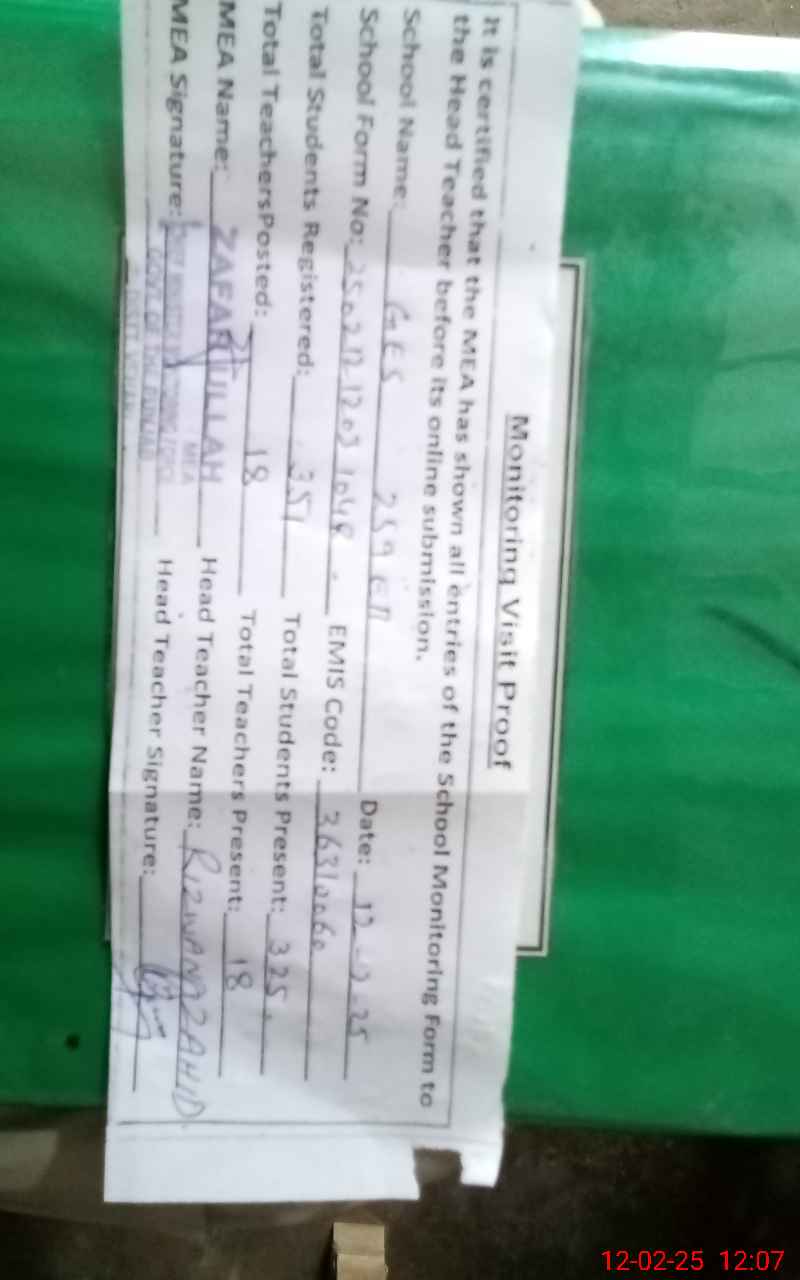 Monitoring Visit Proof
It is certified that the MEA has shown all entries of the School Monitoring Form to
the Head Teacher before its online submission.
School Name: GES 259 EB Date: 12-2-25
School Form No: 2502121203 1048 EMIS Code: 36310060
Total Students Registered: 351 Total Students Present: 325
Total TeachersPosted: 18 Total Teachers Present: 18
MEA Name: ZAFAR ULLAH Head Teacher Name: RIZWANA ZAHID
MEA Signature: Head Teacher Signature:
MEA
GOVT OF THE PUNJAB
12-02-25 12:07